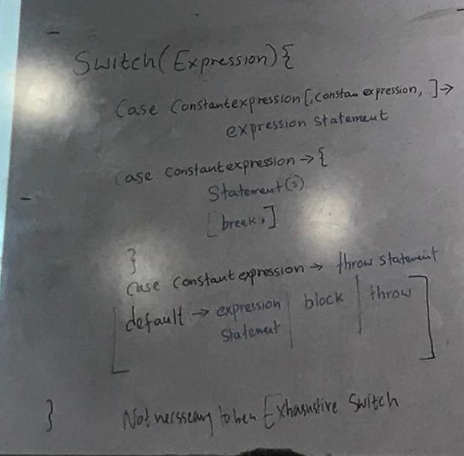 Switch(Expression){
Case Constantexpression[,constan expression, ]→
expression statement
Case constantexpression→{
Statement(s)
[break,]
}
Case constantexpression→ throw statement
[default → expression | block | throw]
statement
} Not necssary to be a Exhasustive Switch